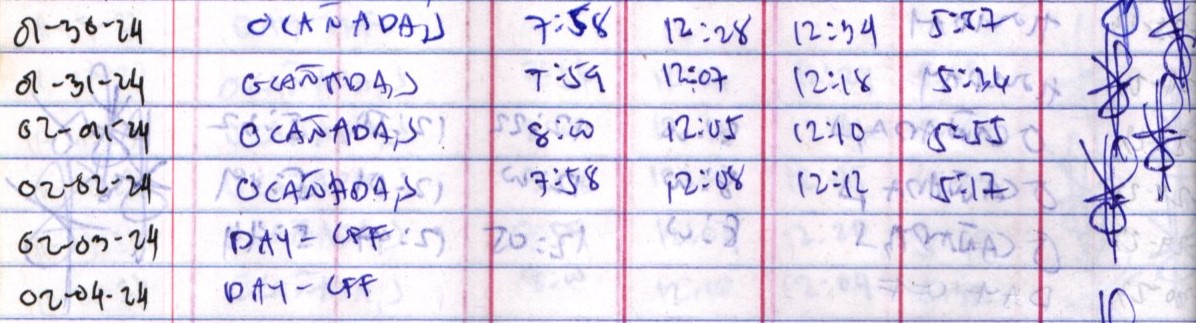 01-30-24 OCAÑADA,J 7:58 12:28 12:34 5:37
01-31-24 OCAÑADA,J 7:59 12:07 12:18 5:34
02-01-24 OCAÑADA,J 8:00 12:05 12:10 5:55
02-02-24 OCAÑADA,J 7:58 12:08 12:12 5:17
02-03-24 DAY-OFF
02-04-24 DAY-OFF